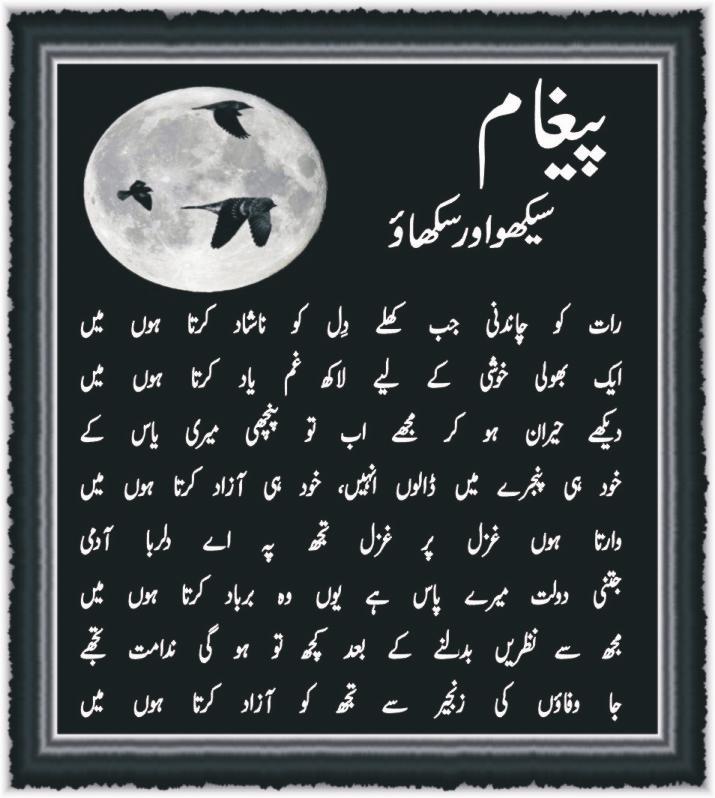 پیغام
سیکھو اور سکھاؤ
رات کو چاندنی جب کھلے دِل کو ناشاد کرتا ہوں میں
ایک بھولی خوشی کے لیے لاکھ غم یاد کرتا ہوں میں
دیکھے حیران ہو کر مجھے اب تو پنچھی میری یاس کے
خود ہی پنجرے میں ڈالوں انہیں، خود ہی آزاد کرتا ہوں میں
وارتا ہوں غزل پر غزل تجھ پہ اے دلربا آدمی
جتنی دولت میرے پاس ہے یوں وہ برباد کرتا ہوں میں
مجھ سے نظریں بدلنے کے بعد کچھ تو ہو گی ندامت تجھے
جا وفاؤں کی زنجیر سے تجھ کو آزاد کرتا ہوں میں